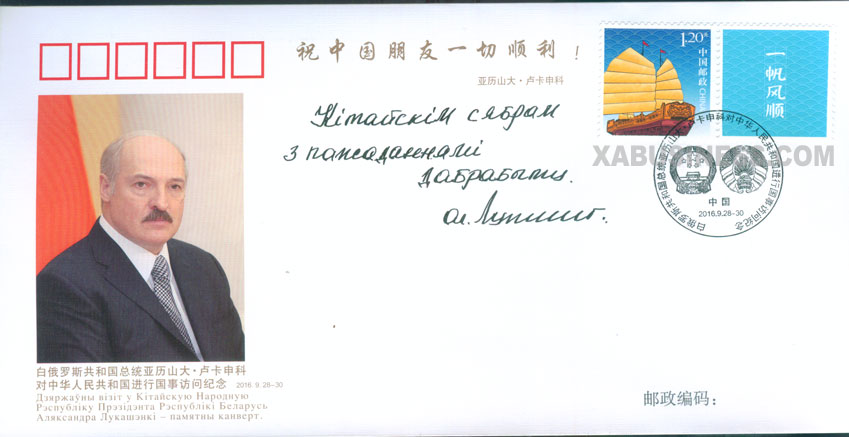 祝中国朋友一切顺利！
亚历山大·卢卡申科
Кітайскім сябрам
з пажаданнямі
дабрабыту.
1.20元
中国邮政
CHINA
一帆风顺
白俄罗斯共和国总统亚历山大·卢卡申科对中华人民共和国进行国事访问纪念
中国
2016.9.28-30
白俄罗斯共和国总统亚历山大·卢卡申科
对中华人民共和国进行国事访问纪念 2016.9.28-30
Дзяржаўны візіт у Кітайскую Народную
Рэспубліку Прэзідэнта Рэспублікі Беларусь
Аляксандра Лукашэнкі – памятны канверт.
邮政编码：